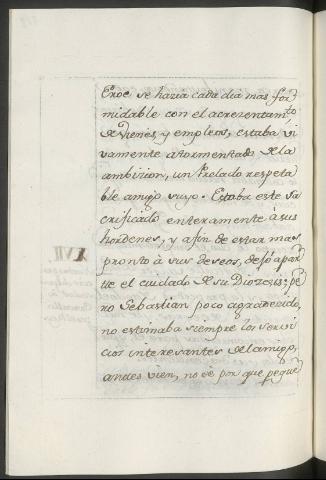 Eroe se hazia cada dia mas for
midable con el acrezentamto
de vienes, y empleos, estaba vi
vamente atormentado de la
ambizion, un Prelado respeta
ble amigo suyo. Estaba este sa
crificado enteramente à sus
hordenes, y afin de estar mas
pronto à sus deseos, dejó apar
te el cuidado de su Diozesis; pe
ro Sebastian poco agradezido,
no estimaba siempre los servi
cios interesantes del amigo,
antes vien, no sé por que peque
XVII.